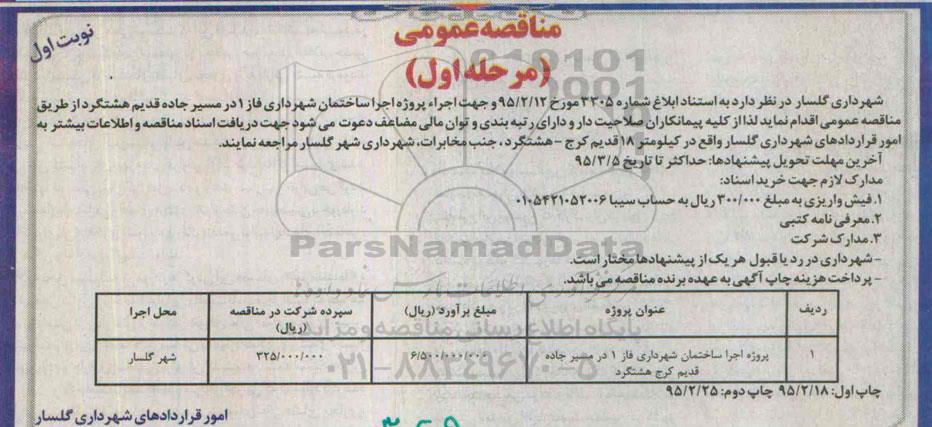 نوبت اول
مناقصه عمومی
(مرحله اول)
شهرداری گلسار در نظر دارد به استناد ابلاغ شماره ۳۳۰۵ مورخ ۹۵/۲/۱۲ و جهت اجراء پروژه اجرا ساختمان شهرداری فاز ۱ در مسیر جاده قدیم هشتگرد از طریق
مناقصه عمومی اقدام نماید لذا از کلیه پیمانکاران صلاحیت دار و دارای رتبه بندی و توان مالی مضاعف دعوت می شود جهت دریافت اسناد مناقصه و اطلاعات بیشتر به
امور قراردادهای شهرداری گلسار واقع در کیلومتر ۱۸ قدیم کرج – هشتگرد، جنب مخابرات، شهرداری شهر گلسار مراجعه نمایند.
آخرین مهلت تحویل پیشنهادها: حداکثر تا تاریخ ۹۵/۳/۵
مدارک لازم جهت خرید اسناد:
۱. فیش واریزی به مبلغ ۳۰۰/۰۰۰ ریال به حساب سیبا ۰۱۰۵۴۲۱۰۵۲۰۰۶
۲. معرفی نامه کتبی
۳. مدارک شرکت
– شهرداری در رد یا قبول هر یک از پیشنهادها مختار است.
– پرداخت هزینه چاپ آگهی به عهده برنده مناقصه می باشد.
ParsNamadData
پایگاه اطلاع رسانی مناقصه و مزایده
۰۲۱-۸۸۳۴۹۶۷۰-۵
ردیف عنوان پروژه مبلغ برآورد (ریال) سپرده شرکت در مناقصه (ریال) محل اجرا
۱ پروژه اجرا ساختمان شهرداری فاز ۱ در مسیر جاده قدیم کرج هشتگرد ۶/۵۰۰/۰۰۰/۰۰۰ ۳۲۵/۰۰۰/۰۰۰ شهر گلسار
چاپ اول: ۹۵/۲/۱۸ چاپ دوم: ۹۵/۲/۲۵
امور قراردادهای شهرداری گلسار